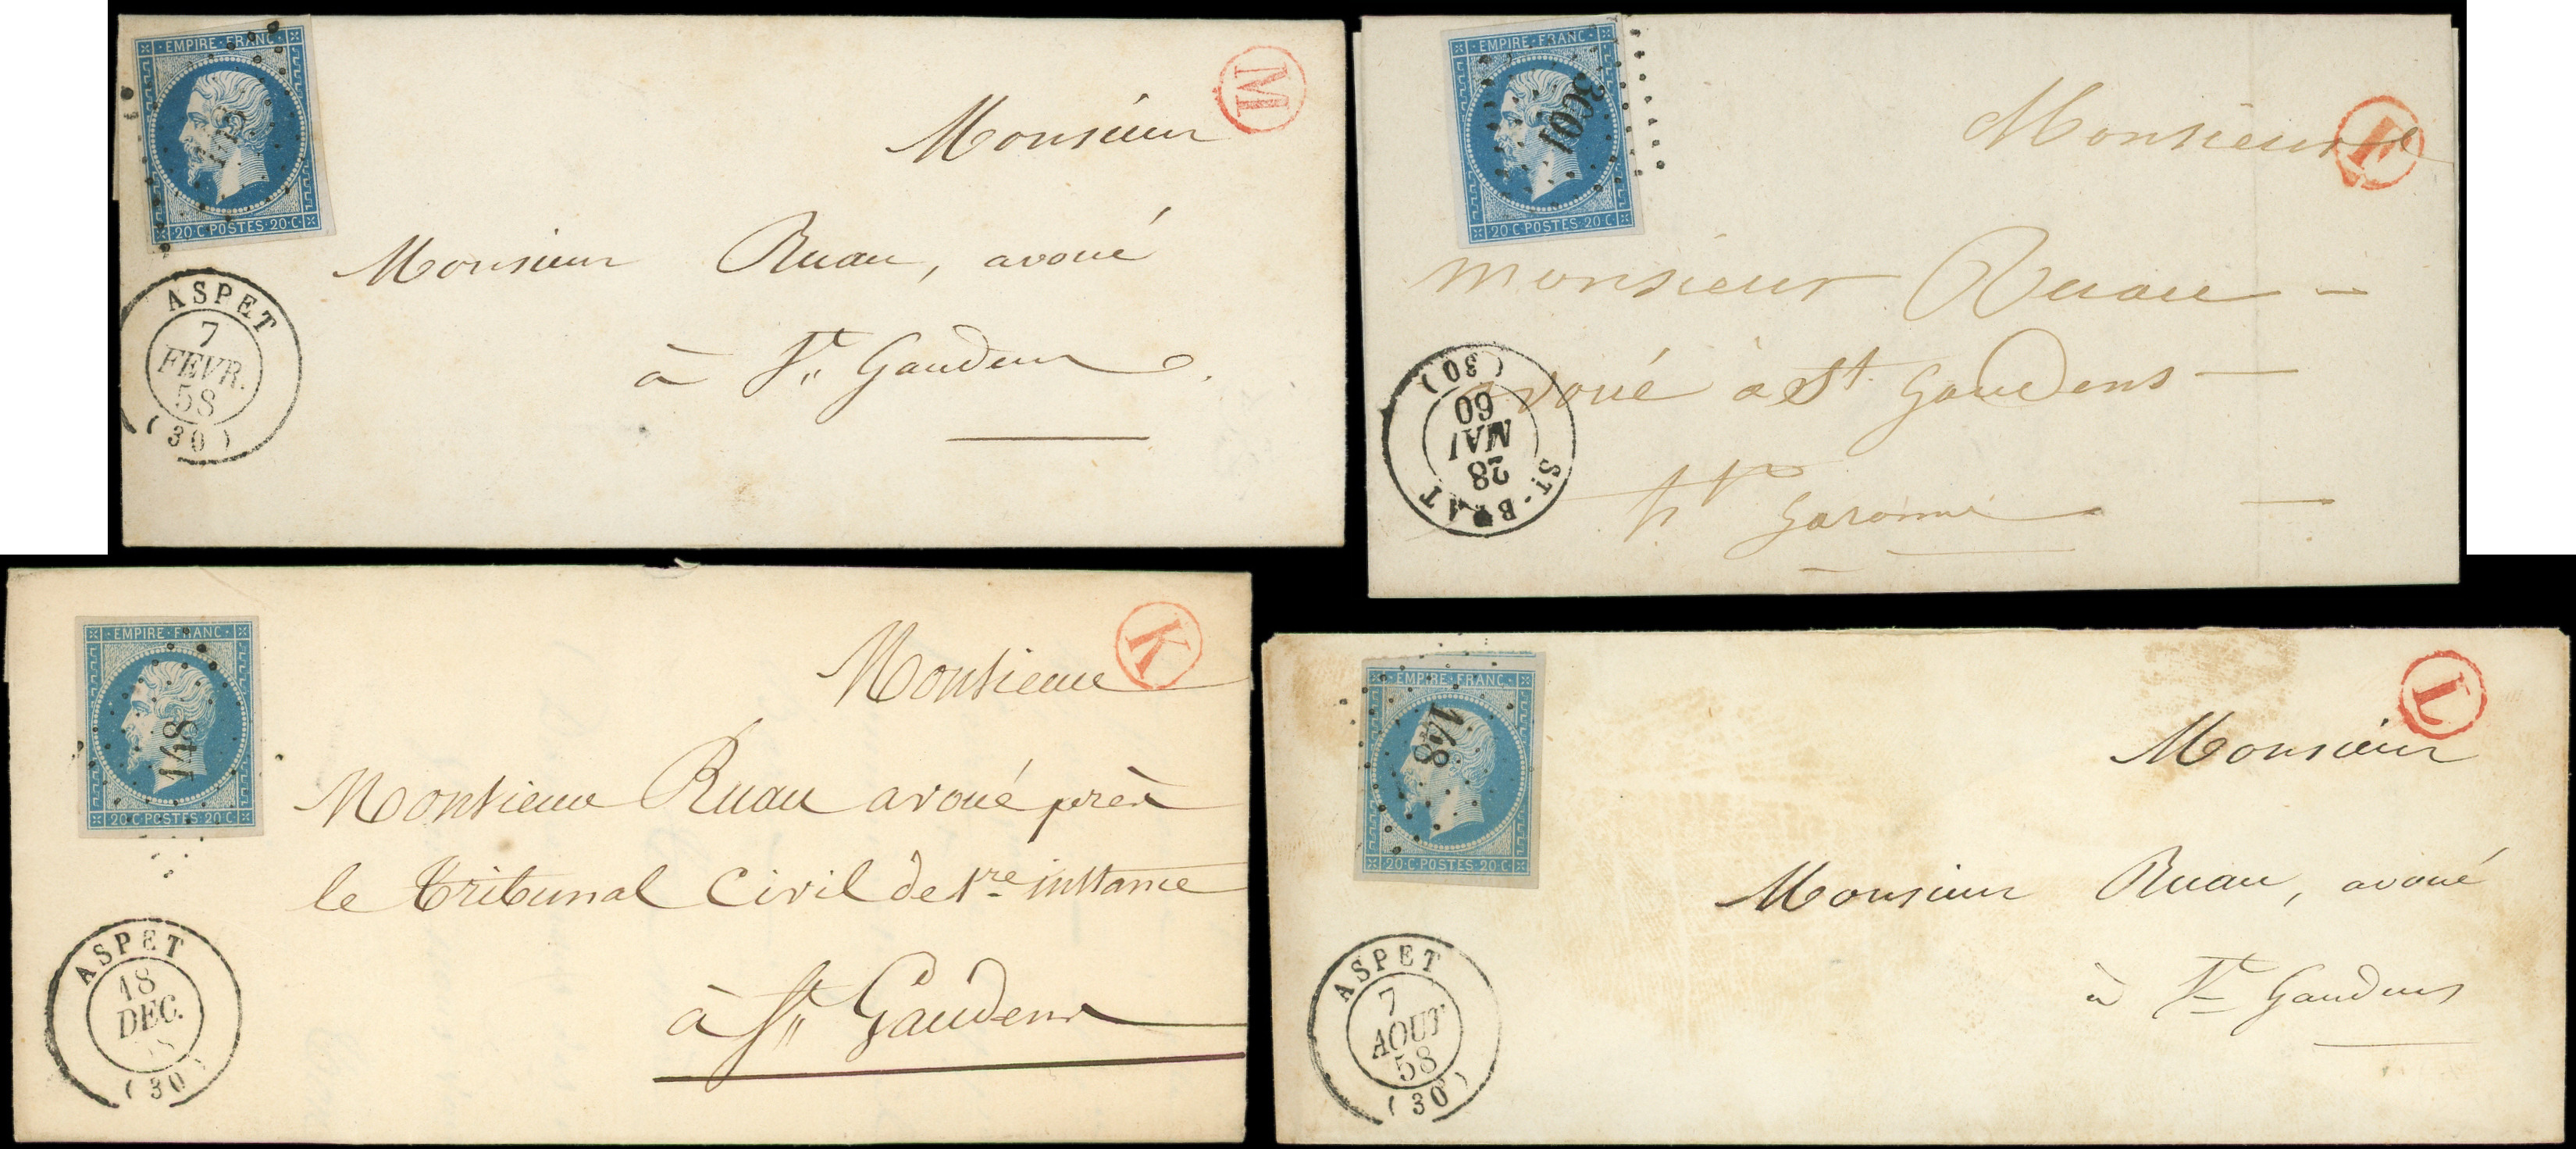 EMPIRE·FRANC·
20·C·POSTES·20·C·
M
Monsieur
Monsieur Ruau, avoué
à St Gaudens
ASPET
7
FEVR.
58
(30)
EMPIRE·FRANC·
20·C·POSTES·20·C·
Monsieur
Monsieur Ruau
avoué à St Gaudens
hte Garonne
ST-BEAT
28
MAI
60
(30)
EMPIRE·FRANC·
148
20·C·POSTES·20·C·
K
Monsieur
Monsieur Ruau avoué près
le tribunal Civil de 1re instance
à St Gaudens
ASPET
18
DEC.
(30)
EMPIRE·FRANC·
148
20·C·POSTES·20·C·
L
Monsieur
Monsieur Ruau, avoué
à St Gaudens
ASPET
7
AOUT
58
(30)